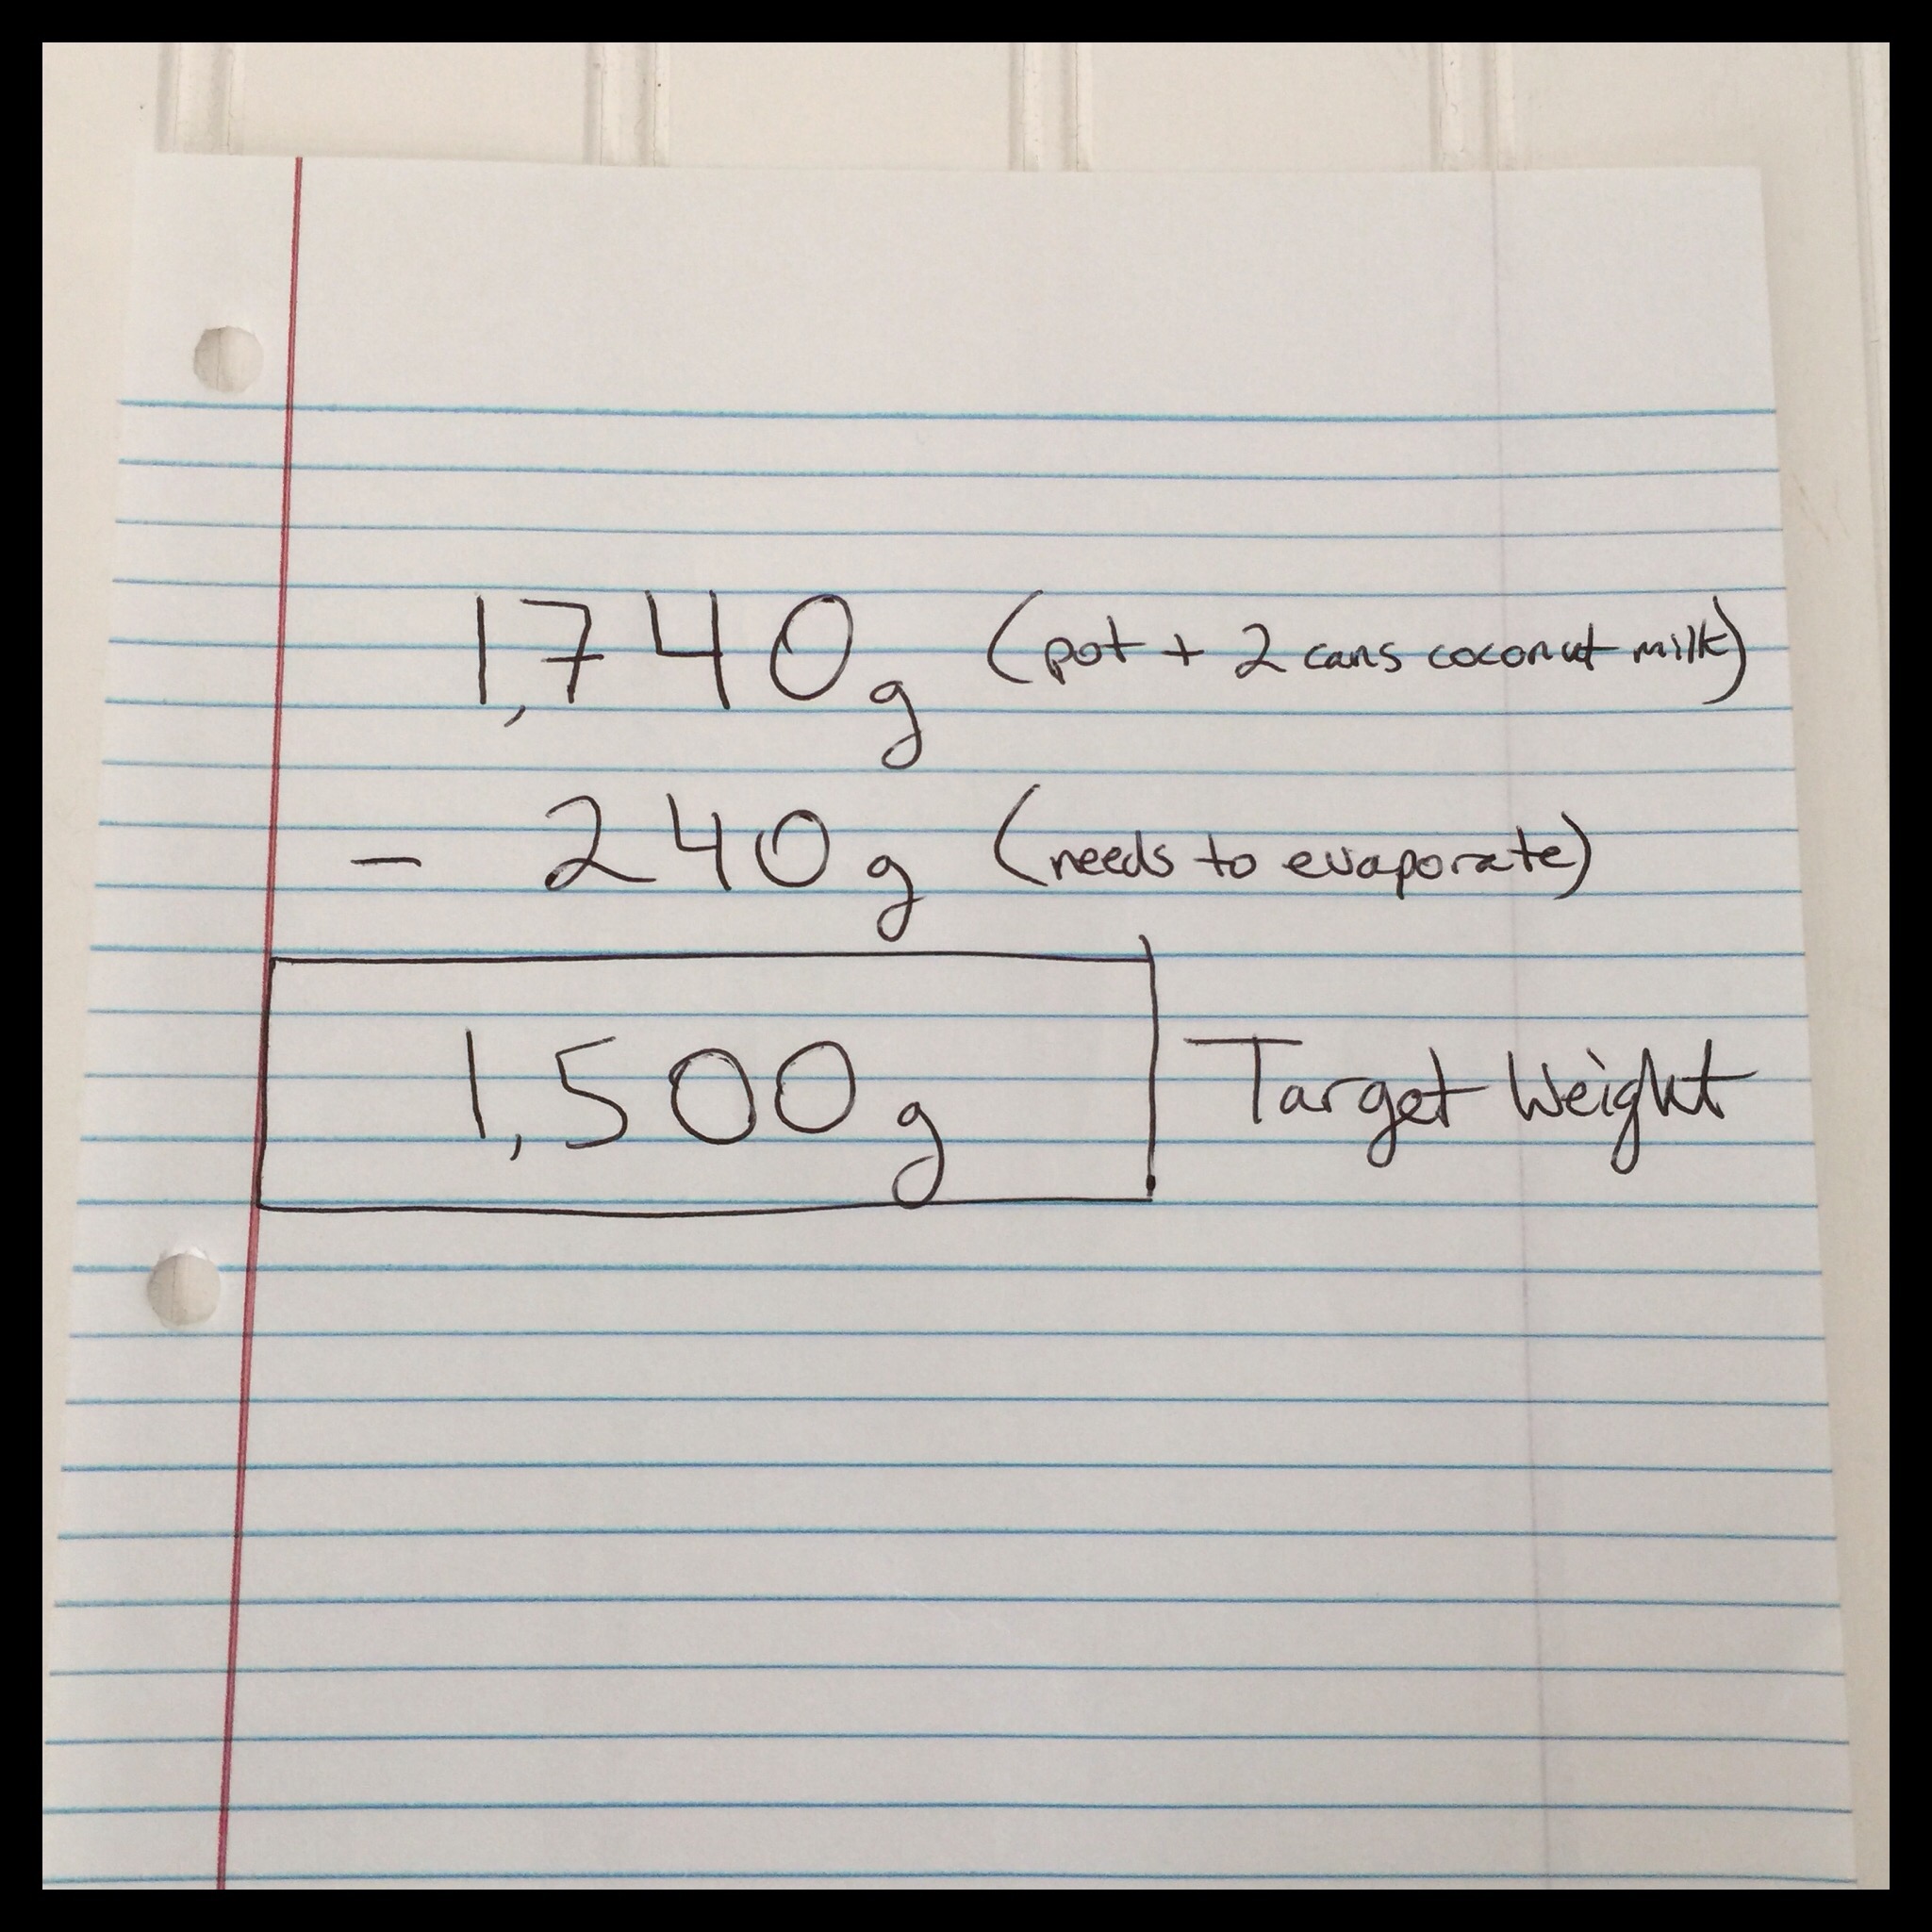 1,740g (pot + 2 cans coconut milk)
- 240g (needs to evaporate)
1,500g Target Weight